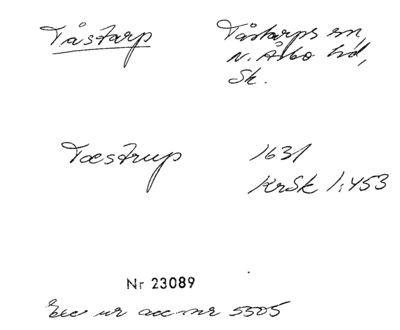 Tåstarp
Tåstarps sn,
N. Åsbo hd,
Sk.
Tæstrup
1631
KrSk 1:453
Nr 23089
Exc ur acc nr 5505